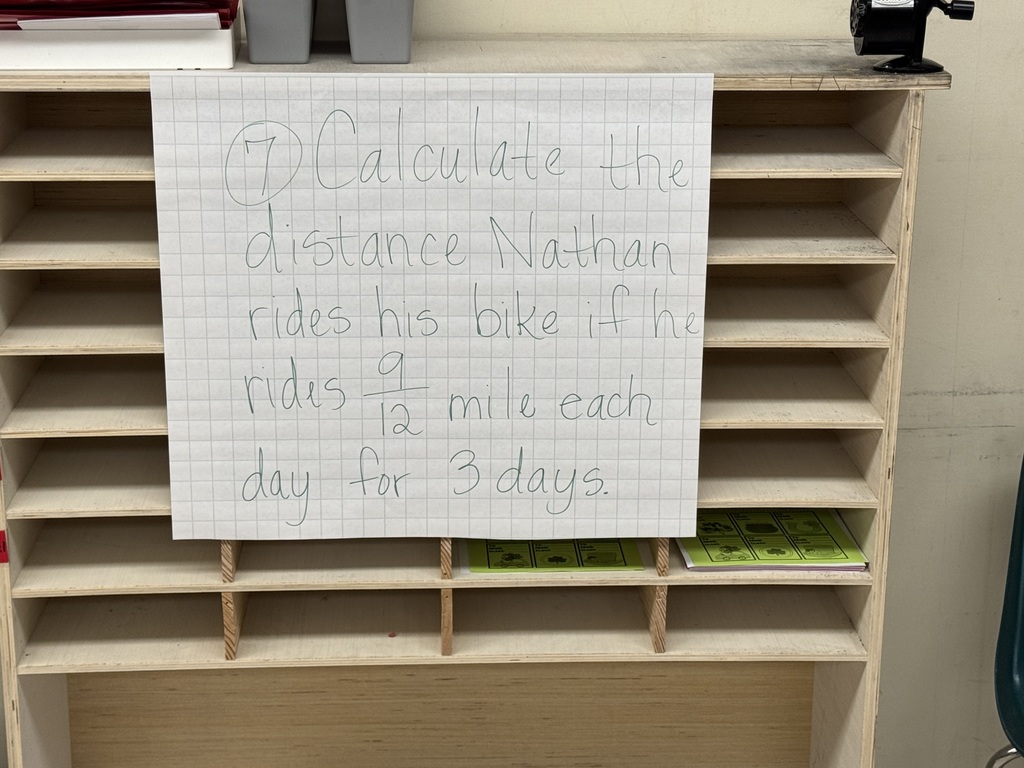 7 Calculate the
distance Nathan
rides his bike if he
rides 9/12 mile each
day for 3 days.